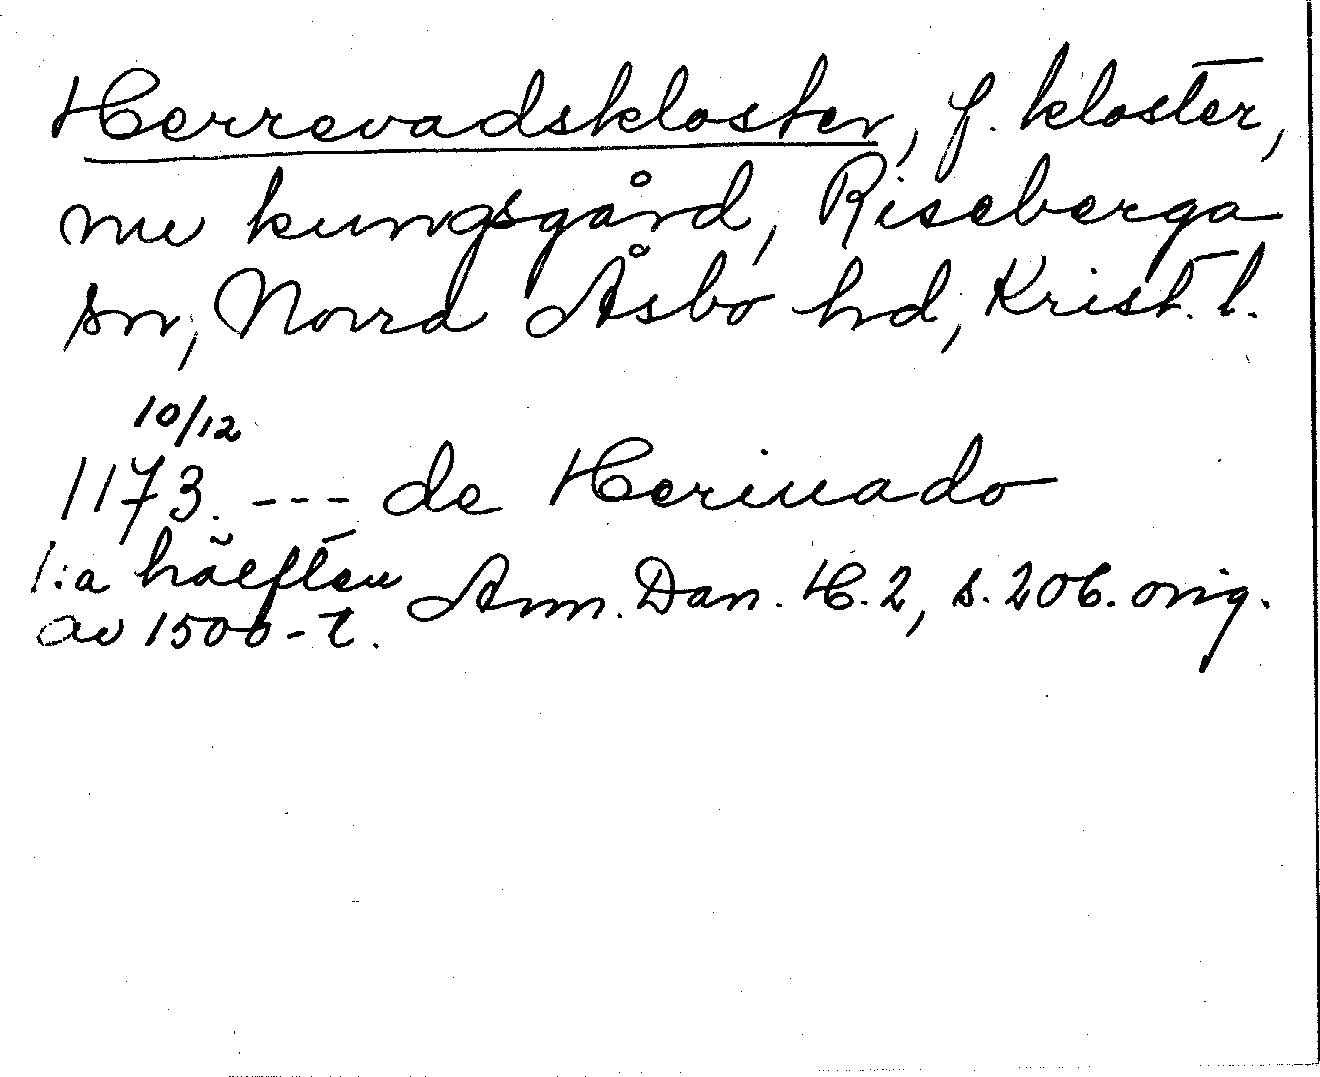 Herrevadskloster, f. kloster,
nu kungsgård, Riseberga
sn, Norra Åsbo hd, Krist. l.
10/12
1173. --- de Heriuado
1:a hälften
av 1500-t.
Ann. Dan. H. 2, s. 206. orig.